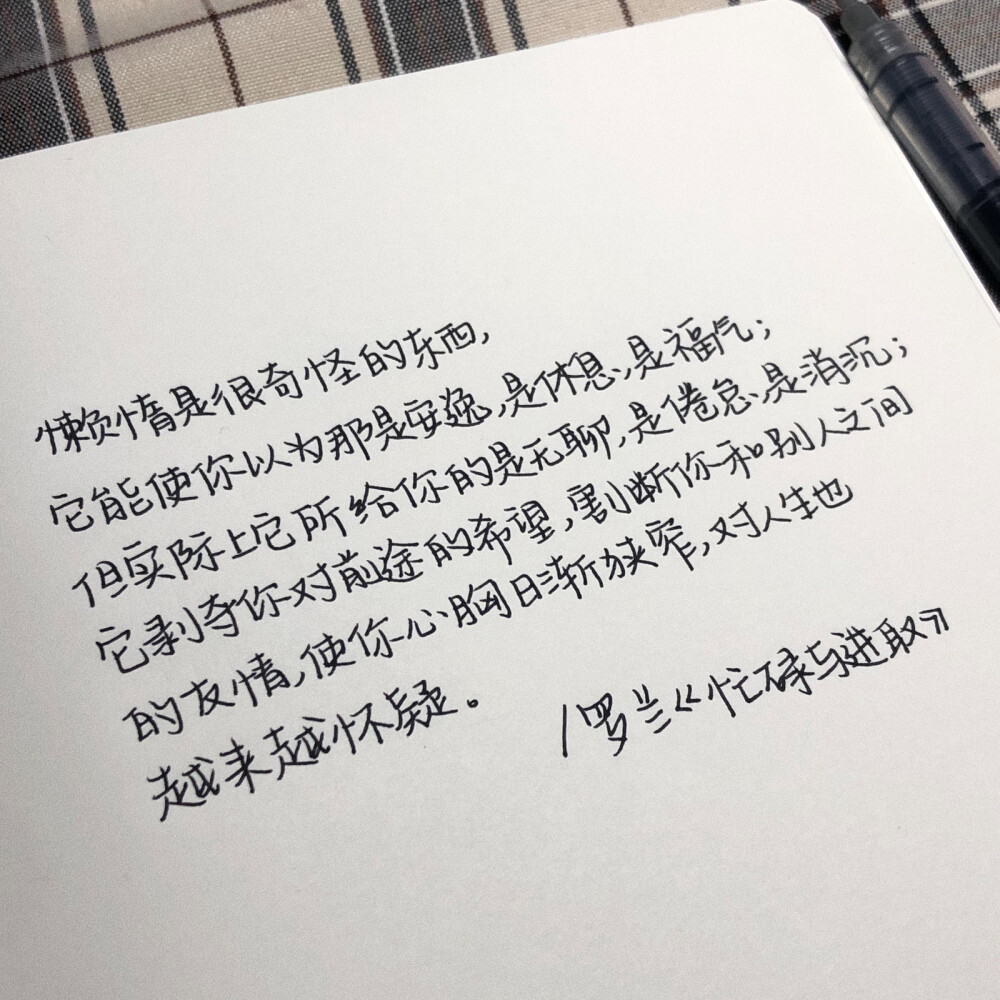 懒惰是很奇怪的东西,
它能使你以为那是安逸,是休息,是福气;
但实际上它所给你的是无聊,是倦怠,是消沉;
它剥夺你对前途的希望,割断你和别人之间
的友情,使你心胸日渐狭窄,对人生也
越来越怀疑。
/罗兰《忙碌与进取》